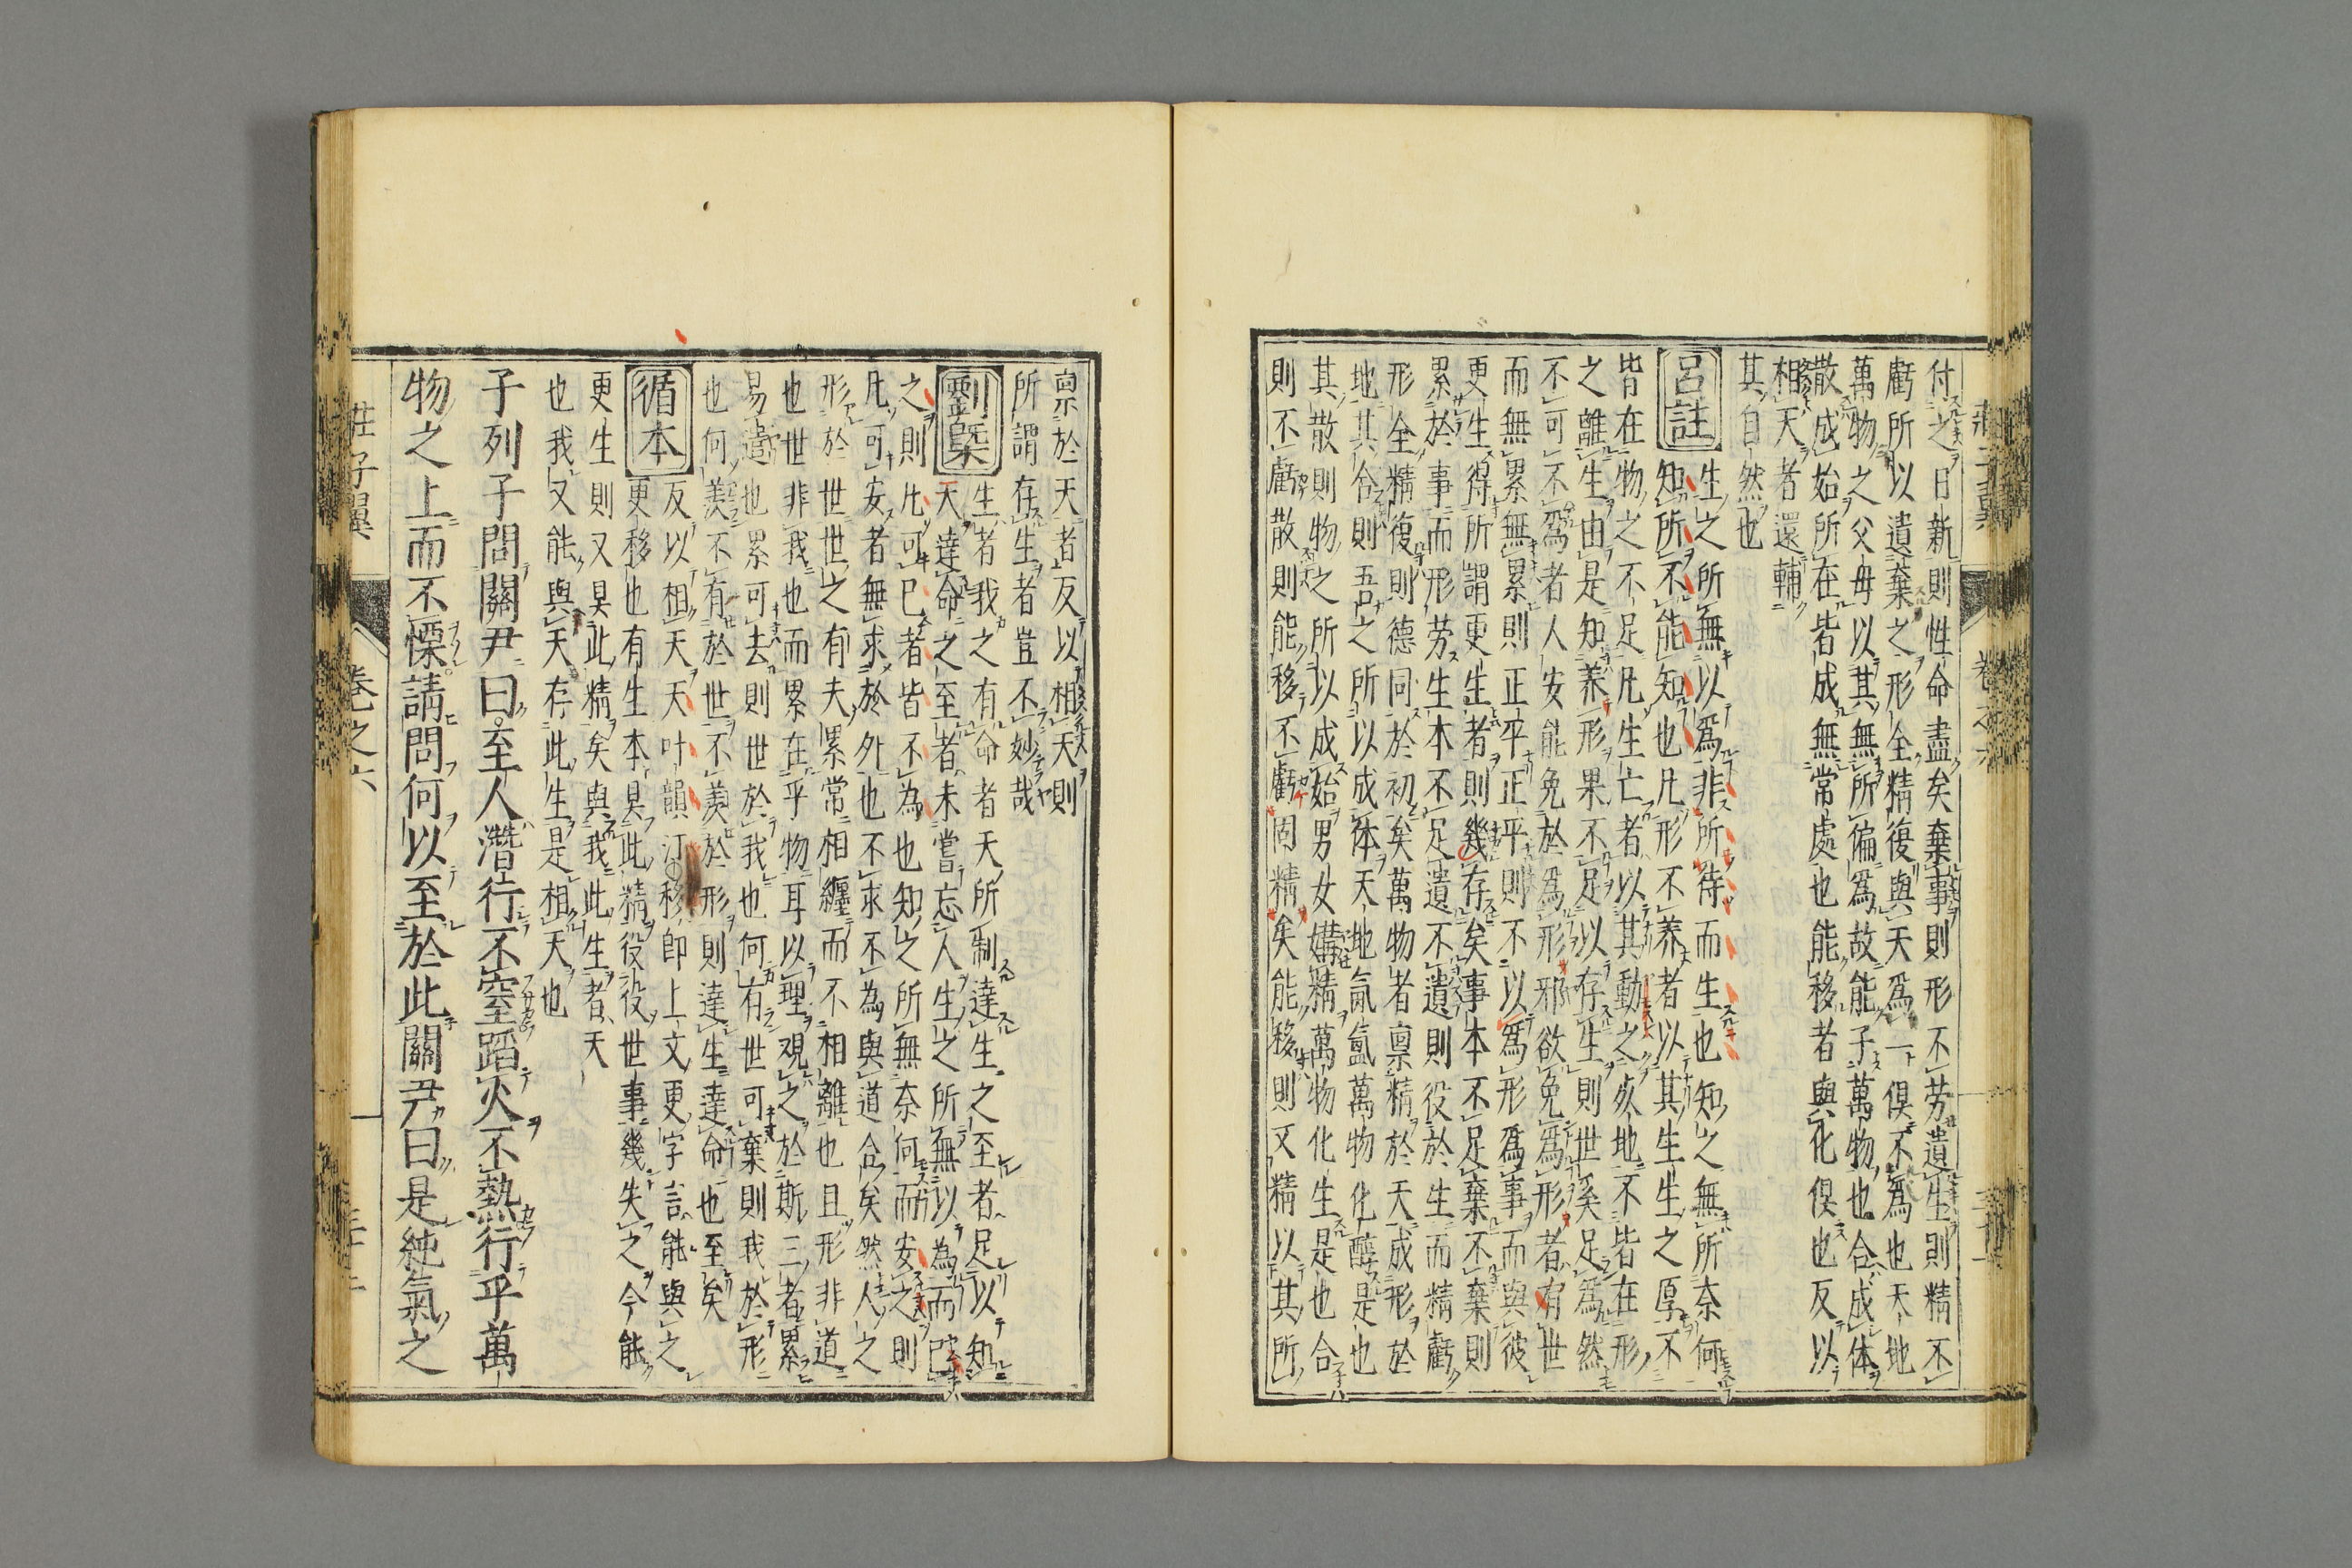 付之日新則性命盡矣棄事則形不劳遺生則精不
虧所以遺棄之形全精復與天爲一俱不爲也天地
萬物之父母以其無所偏爲故能子萬物也合成体
散成始所在皆成無常處也能移者與化俱也反以
相天者還輔
其自然也
呂註
生之所無以爲非所待而生也知之無所奈何
知所不能知也凡形不养者以其生生之厚不
皆在物之不足凡生亡者以其動之死地不皆在形
之離生由是知养形果不足以存生則世奚足爲然
不可不爲者人安能免於爲形邪欲免爲形者有世
而無累無累則正平正平則不以爲形爲事而與彼
更生得所謂更生者則幾存矣事本不足棄不棄則
累於事而形劳生本不足遺不遺則役於生而精虧
形全精復則德同於初矣萬物者禀精於天成形於
地其合則吾之所以成体天地氤氳萬物化醇是也
其散則物之所以成始男女媾精萬物化生是也合
則不虧散則能移不虧固精矣能移則又精以其所
禀於天者反以相天則
所謂存生者豈不妙哉
劉槩
生者我之有命者天所制達生之至者足以知
天達命之至者未嘗忘人生之所無以為而已
之則凡可已者皆不為也知之所無奈何而安之則
凡可安者無求於外也不求不為與道合矣然人之
形於世世之有夫累常相纏而不相離也且形非道
也世非我也而累在乎物耳以理观之於斯三者累
易遣也累可去則世於我也何有世可棄則我於形
也何羡不有於世不羡於形則達生達命也至矣
循本
反以相天天叶韻汀○移即上文更字言能與之
更移也有生本具此精役役世事幾失之今能
更生則又具此精矣與我此生者天
也我又能與天存此生是相天也
子列子問關尹曰至人潛行不窒蹈火不熱行乎萬
物之上而不慄請問何以至於此關尹曰是純氣之
莊子翼
卷之六